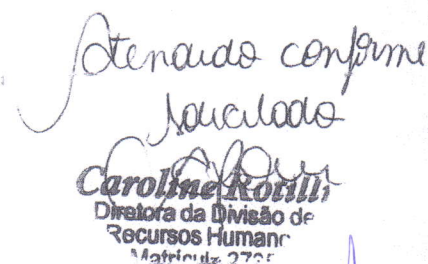 Atendido conforme
solicitado
Caroline Rotilli
Diretora da Divisão de
Recursos Humano
Matrícula 273